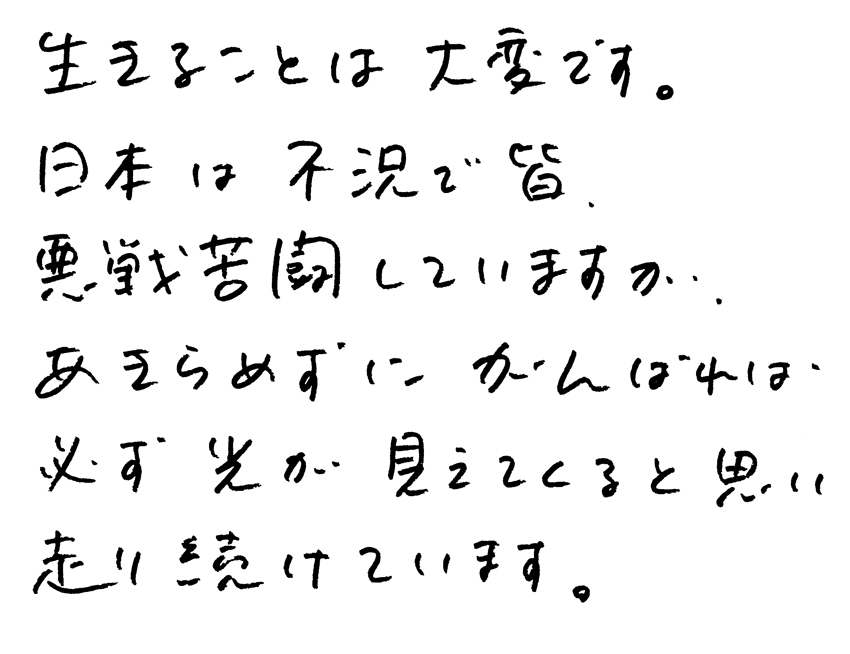 生きることは大変です。
日本は不況で皆、
悪戦苦闘していますが、
あきらめずにがんばれば
必ず光が見えてくると思い
走り続けています。